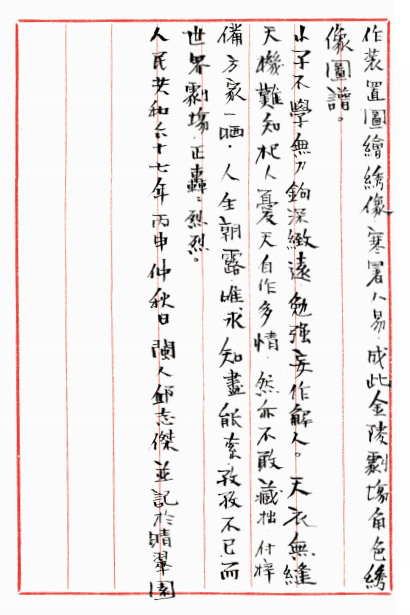 作裝置圖繪綉像寒暑八易成此金陵劇場角色綉
像圖譜。
小子不學無力鉤深緻遠勉強妄作解人。天衣無縫
天機難知杞人憂天自作多情然亦不敢藏拙付梓
備方家一哂人生朝露唯求知盡能索孜孜不已而
世界劇場正轟轟烈烈。
人民共和六十七年丙申仲秋日閩人邱志傑並記於晴翠園